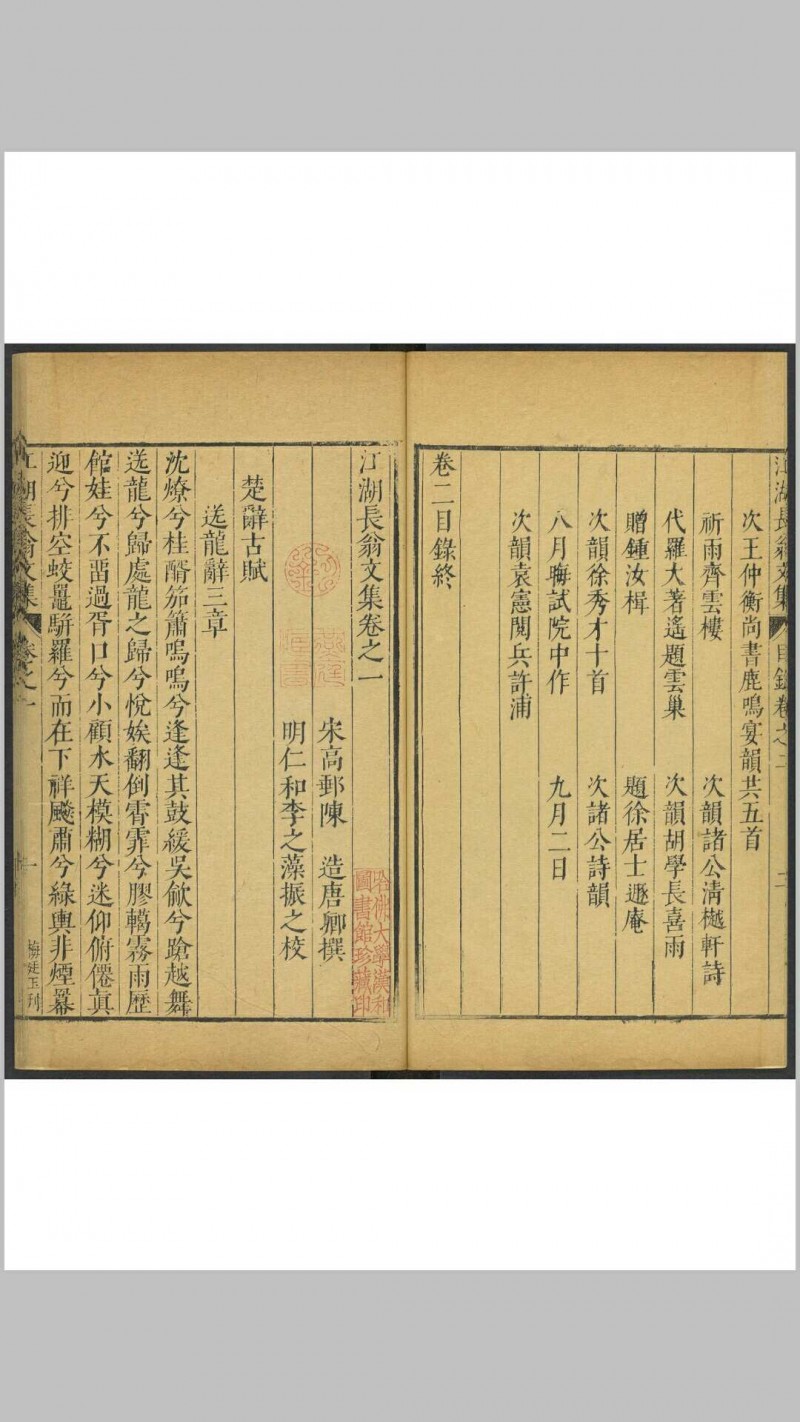 江湖長翁文集 目錄卷之二 二
次王仲衡尚書鹿鳴宴韻共五首
祈雨齊雲樓 次韻諸公淸樾軒詩
代羅大著遙題雲巢 次韻胡學長喜雨
贈鍾汝楫 題徐居士遯庵
次韻徐秀才十首 次諸公詩韻
八月晦試院中作 九月二日
次韻袁憲閱兵許浦
卷二目錄終
江湖長翁文集卷之一
宋高郵陳 造唐卿撰
明仁和李之藻振之校
楚辭古賦
送龍辭三章
沈燎兮桂醑笳簫嗚嗚兮逢逢其鼓緩吳歈兮蹌越舞
送龍兮歸處龍之歸兮悅娭翻倒霄霏兮膠轕霧雨歷
館娃兮不畱過胥口兮小顧水天模糊兮迷仰俯僊眞
迎兮排空蛟鼉駢羅兮而在下祥飈肅兮綠輿非煙羃
江湖長翁文集 卷之一 一
哈佛大學漢和
圖書館珍藏印